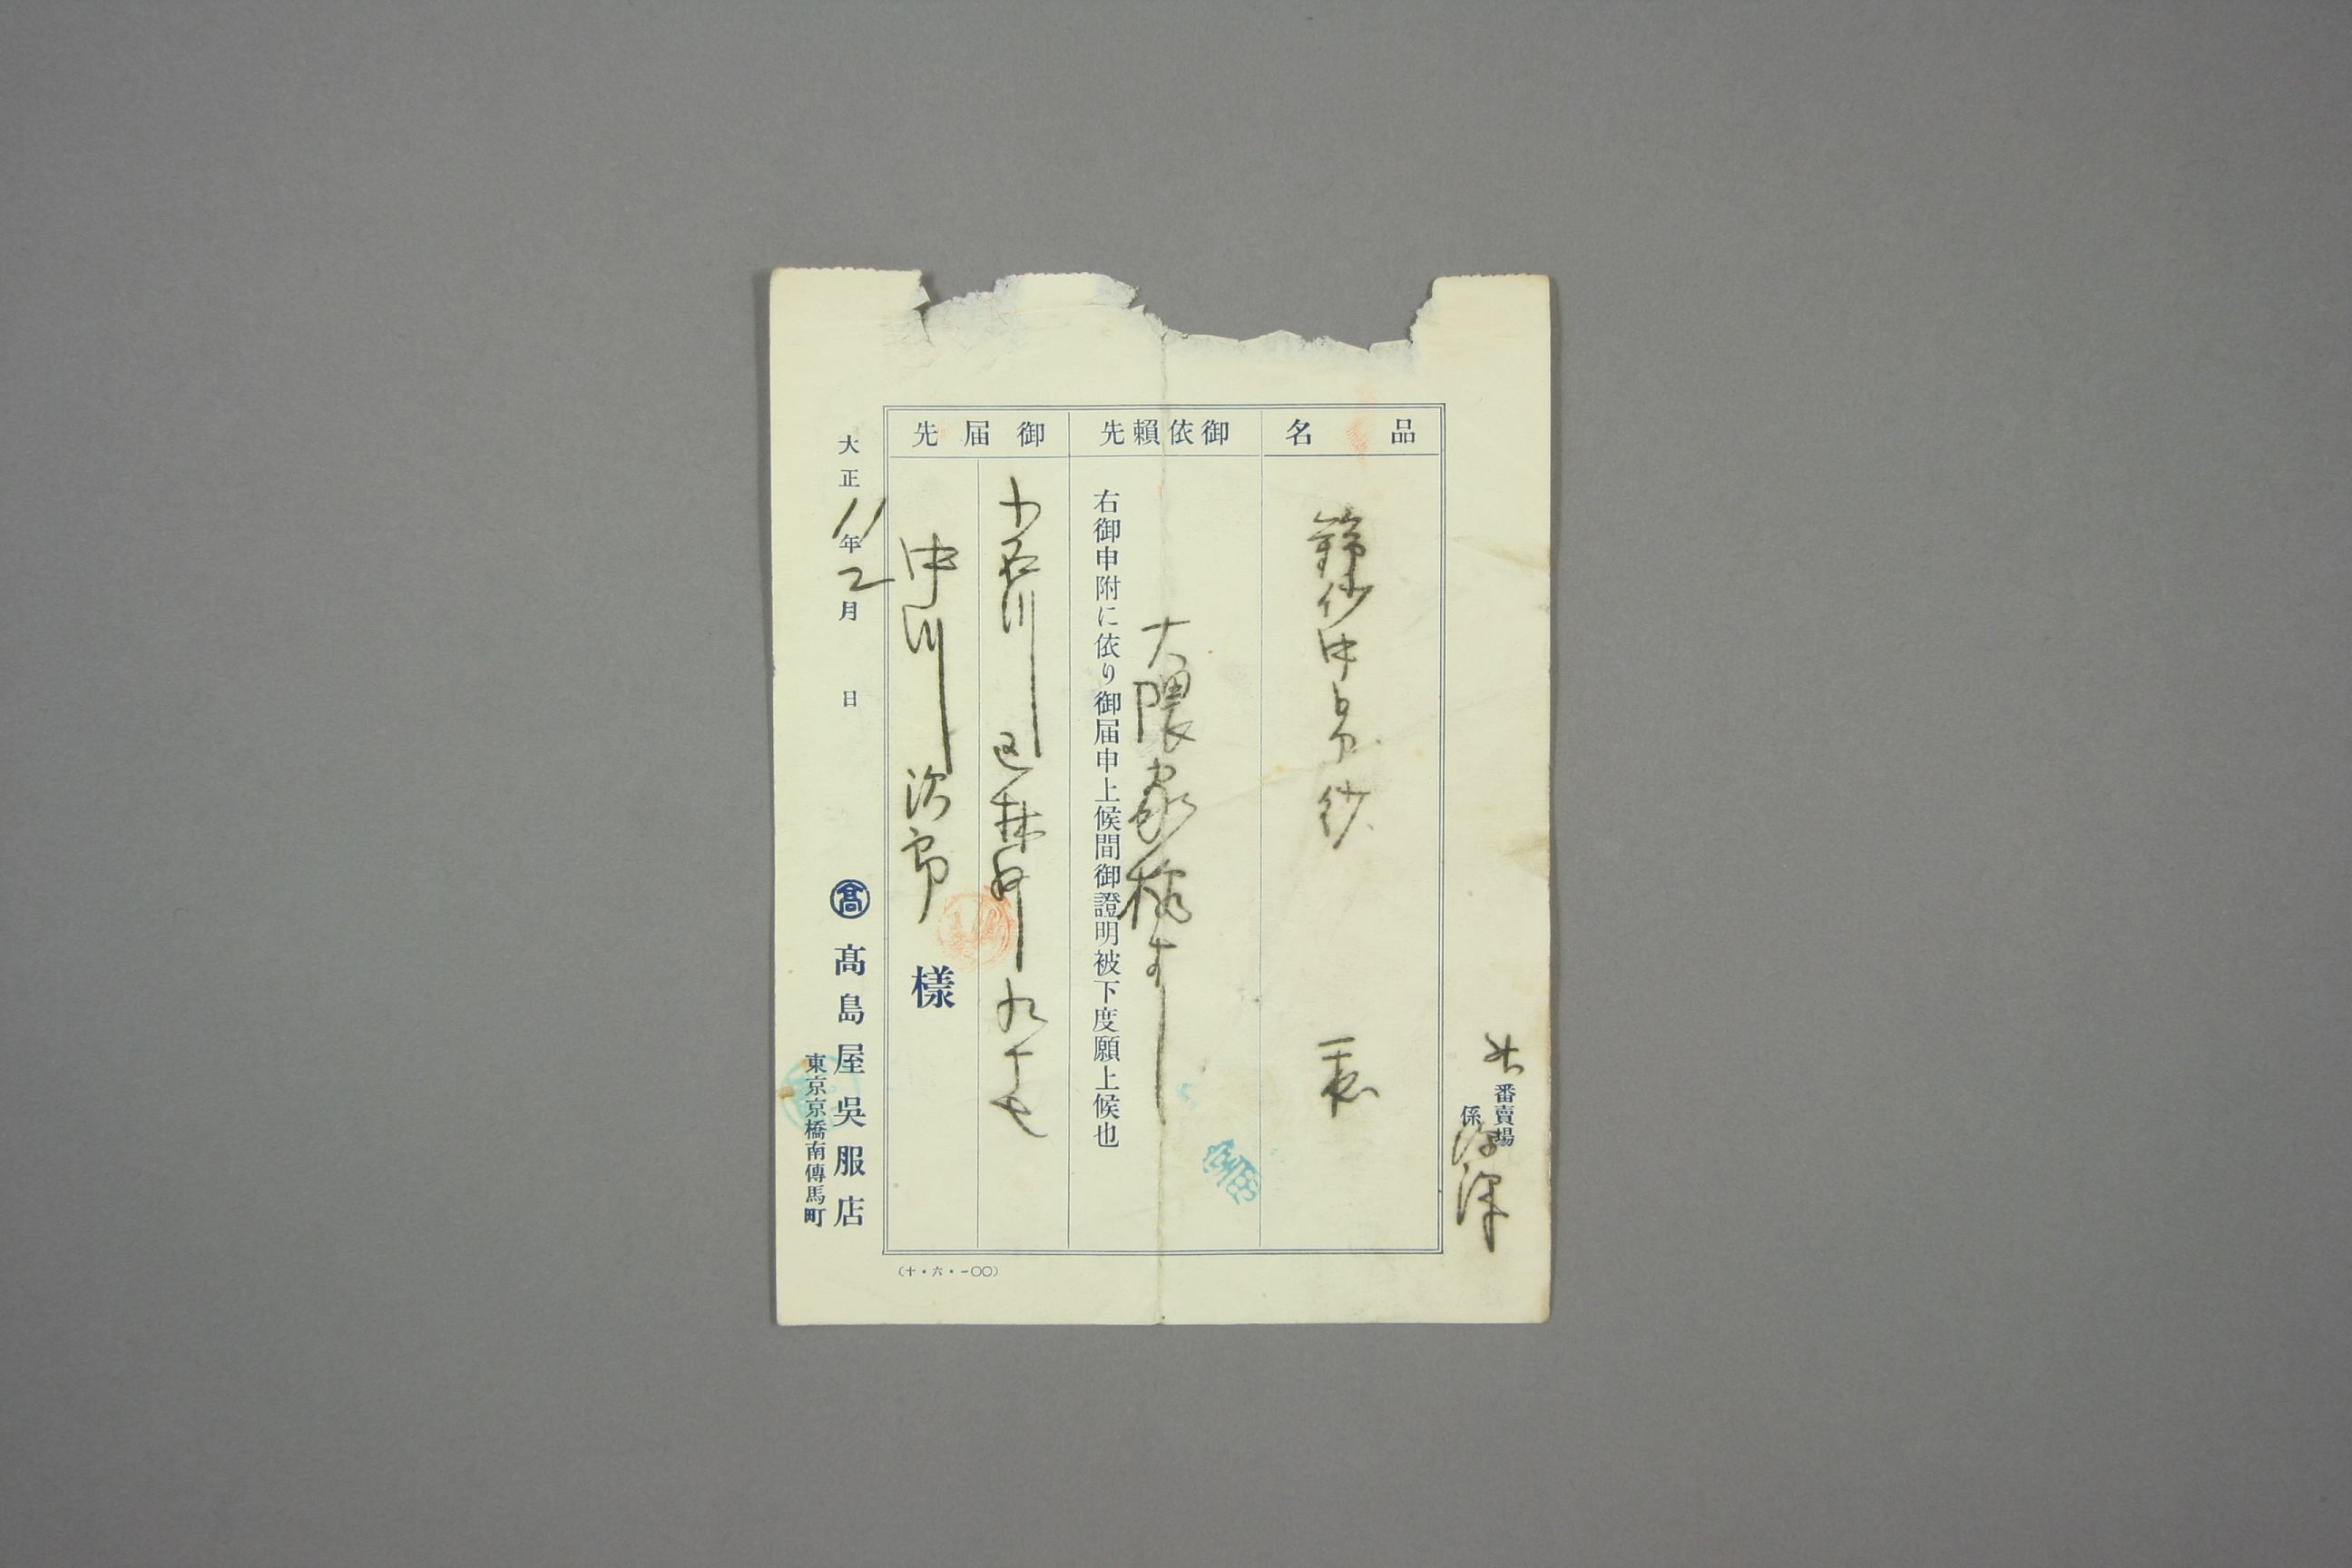 番賣場
係
品名
錦紗中帛紗
御依賴先
大隈家様
右御申附に依り御届申上候間御證明被下度願上候也
御届先
小石川区林町九十七
中川治郎
樣
大正11年2月日
髙
髙島屋吳服店
東京京橋南傳馬町
(十・六・一〇〇)